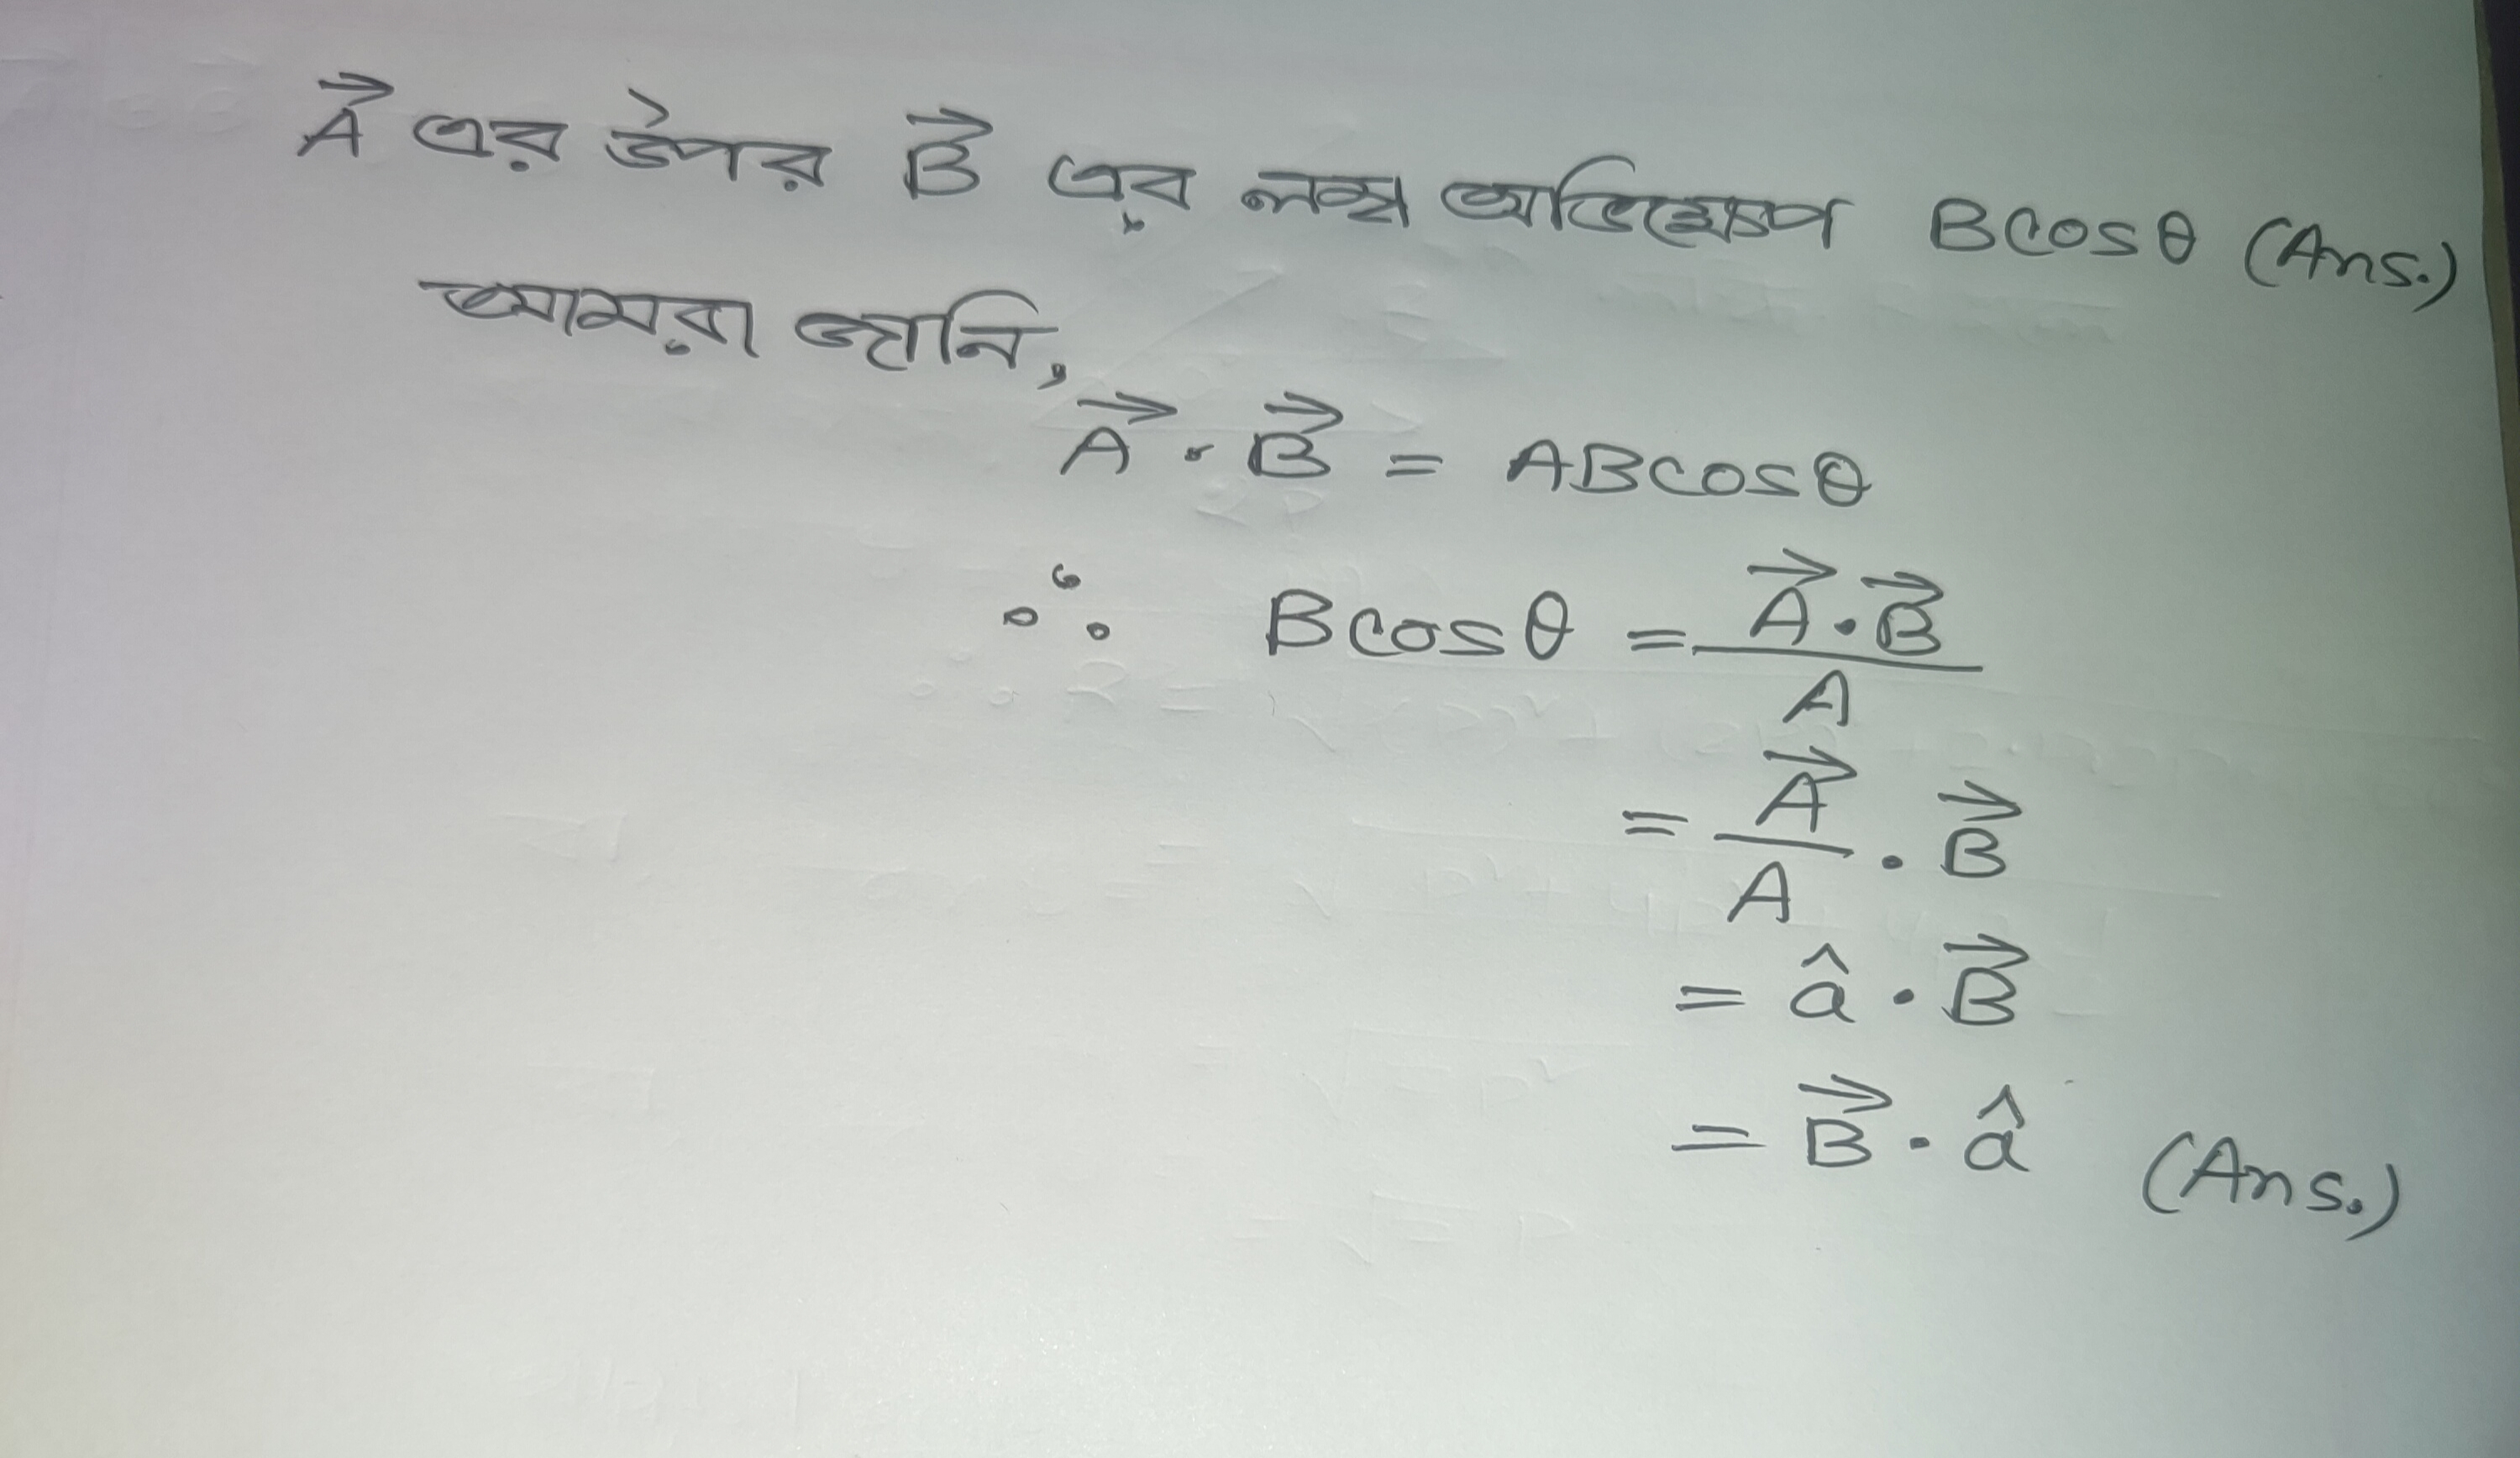 A⃗ এর উপর B⃗ এর লম্ব অভিক্ষেপ Bcosθ (Ans.)
আমরা জানি,
A⃗ · B⃗ = ABcosθ
∴ Bcosθ = A⃗·B⃗ / A
= A⃗/A · B⃗
= â · B⃗
= B⃗ · â (Ans.)